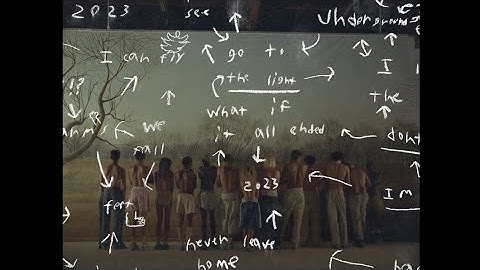 2023 see underground
I can fly go to I
!? the light the
what if
arms we it all ended dont
fall
2023 Im
feet
never leave
home